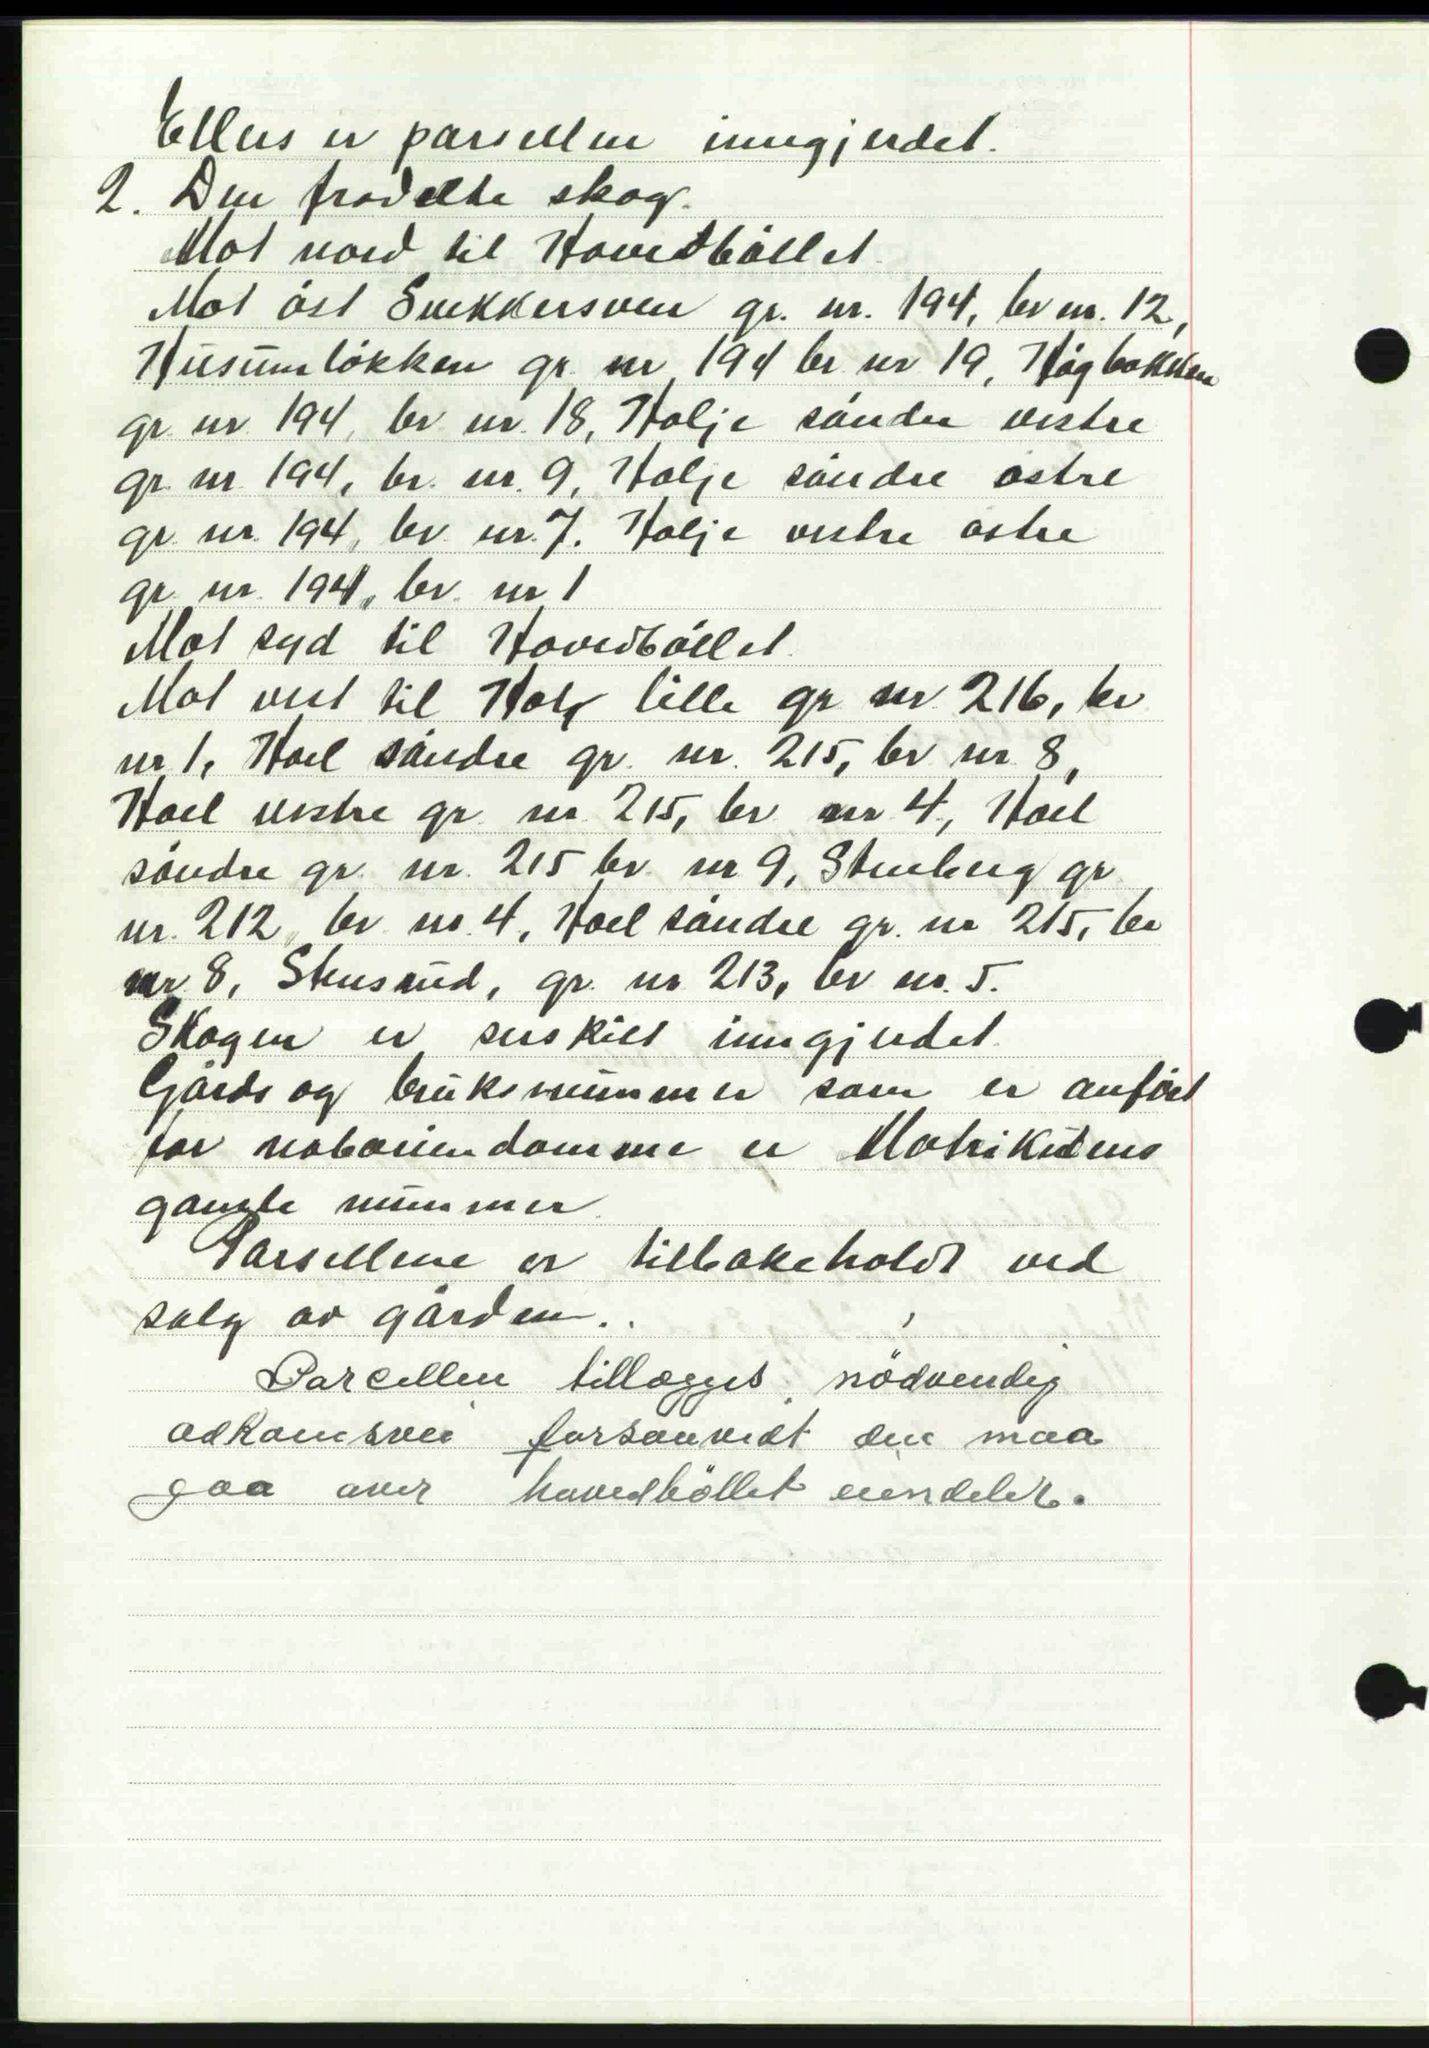 Ellers er parsellen inngjerdet.
2. Den fradelte skog.
Mot nord til Hovedbøllet.
Mot øst Snekkersveen gr. nr. 194, br nr. 12,
Husumløkken gr. nr 194 br nr 19, Høgbakken
gr. nr 194, br nr. 18, Holje søndre vestre
gr. nr 194, br. nr. 9, Holje søndre østre
gr. nr. 194, br nr. 7. Holje vestre østre
gr. nr. 194, br. nr 1
Mot syd til Hovedbøllet.
Mot vest til lille gr nr 216, br
nr 1, Hoel søndre gr. nr. 215, br nr 8,
Hoel vestre gr nr 215, br nr 4, Hoel
søndre gr. nr. 215 br. nr 9, Stenberg gr
nr. 212, br nr. 4, Hoel søndre gr. nr 215, br
nr 8, Stensrud, gr. nr 213, br nr. 5.
Skogen er serskilt inngjerdet.
Gårds og bruksnummer som er anført
for naboeiendomme er Matrikulens
gamle nummer.
Parsellene er tilbakeholdt ved
salg av gården..
Parcellen tillægges nödvendig
adkomsvei forsaavidt den maa
gaa over hovedböllet eiendeler.